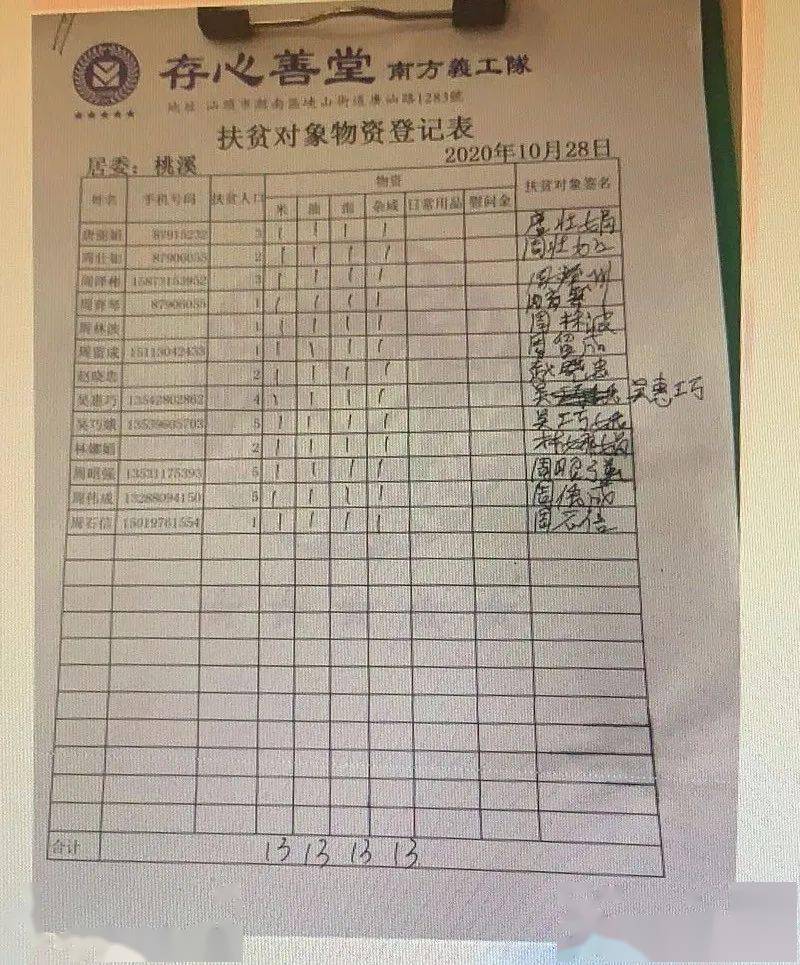 存心善堂 南方義工隊
地址 汕頭市潮南區峡山街道廣汕路1283號
扶贫对象物资登记表
居委：桃溪 2020年10月28日
姓名 手机号码 扶贫人口 物资 扶贫对象签名
米 油 面 杂咸 日常用品 慰问金
87915232 3 1 1 1 1
周壮如 2 1 1 1 1
周泽彬 15873153952 3 1 1 1 1
1 1 1 1 1
周林波 1 1 1 1 1 周林波
15113042433 1 1 1 1 1
赵晓忠 2 1 1 1 1 赵晓忠
吴惠巧 13542802862 4 1 1 1 1 吴惠巧
吴巧娥 13539605703 5 1 1 1 1 吴巧娥
林娜娟 2 1 1 1 1 林娜娟
周昭强 13531175393 5 1 1 1 1 周昭强
周伟成 13288094150 5 1 1 1 1 周伟成
周石信 15019761554 1 1 1 1 1 周石信
合计 13 13 13 13